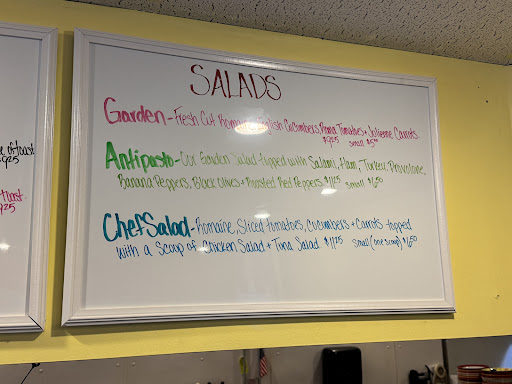 SALADS
Garden - Fresh Cut Romaine, English Cucumbers, Roma Tomatoes + Julienne Carrots
small
Antipasto - Our Garden Salad topped with Salami, Ham, Turkey, Provolone,
Banana Peppers, Black Olives + Roasted Red Peppers $11.25 small $6.50
Chef Salad - Romaine, Sliced tomatoes, Cucumbers + Carrots topped
with a Scoop of Chicken Salad + Tuna Salad $11.25 small (one scoop) $6.50
of toast
toast